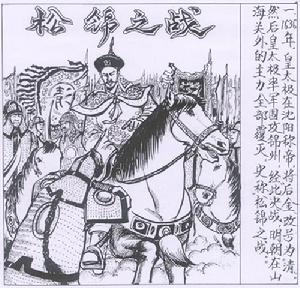 松锦之战
一1636年,皇太极在沈阳称帝,将后金改号为清.
然后皇太极率军围攻锦州,经此决战,明朝在山
海关外的主力全部覆灭,史称松锦之战.